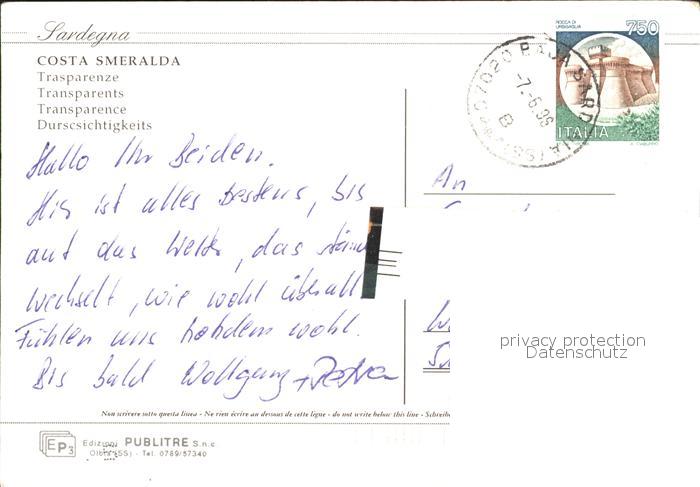 Sardegna
COSTA SMERALDA
Trasparenze
Transparents
Transparence
Durscsichtigkeits
ROCCA DI
URBISAGLIA
750
ITALIA
07020 BAJA SARD
-7.-6.96
Hallo Ihr Beiden.
Hier ist alles bestens, bis
auf das Wetter, das
wechselt, wie wohl überall
Fühlen uns trotzdem wohl.
Bis bald Wolfgang + Petra
An
privacy protection
Datenschutz
Non scrivere sotto questa linea - Ne rien écrire au dessous de cette ligne - do not write below this line - Schreib
EP3
Edizioni PUBLITRE S.n.c.
Olbia (SS) - Tel. 0789/57340